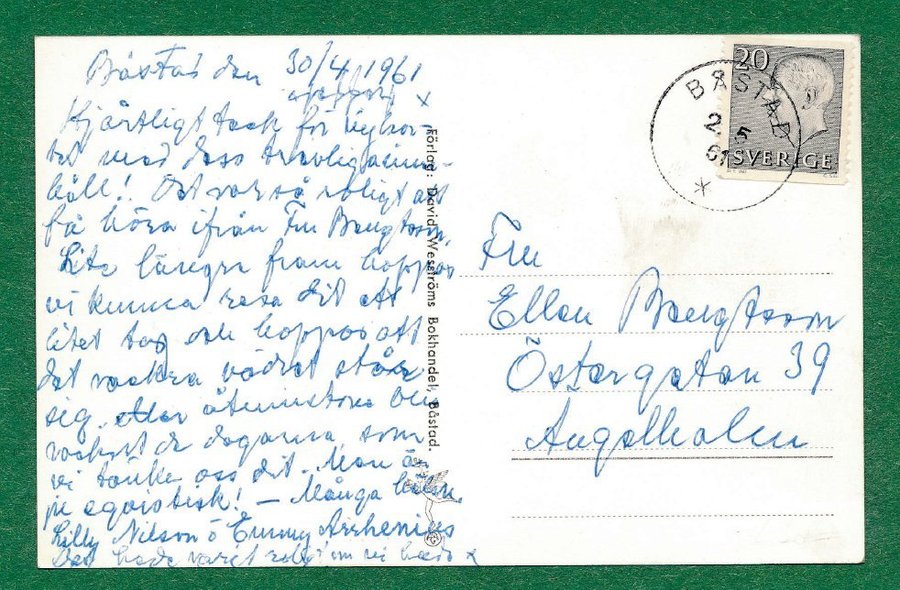 Båstad den 30/4 1961
Hjärtligt tack för
med dess trevliga inne-
håll! Det var så roligt att
få höra ifrån Fru Bengtsson.
Lite längre fram hoppas
vi kunna resa dit ett
litet tag och hoppas att
det vackra vädret står
sig. eller åtminstone blir
vackert de dagarna som
vi tänke oss dit. Man är
ju egoistisk! – Många häls.
Lilly Nilson o Emmy Arrhenius
hade varit om vi
Förlag: David Wesströms Bokhandel, Båstad.
20
SVERIGE
BÅSTAD
2. 5
61
*
Fru
Ellen Bengtsson
Östergatan 39
Ängelholm